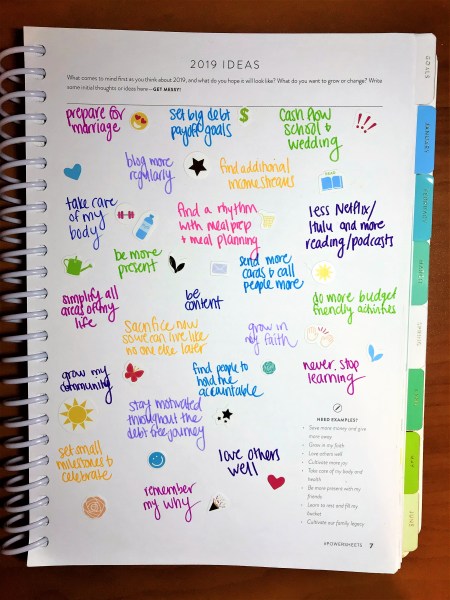 2019 IDEAS
What comes to mind first as you think about 2019, and what do you hope it will look like? What do you want to grow or change? Write
some initial thoughts or ideas here – GET MESSY!
prepare for
marriage
set big debt
payoff goals
$
Cash flow
school &
wedding
!!!
blog more
regularly
find additional
income streams
take care
of my
body
find a rhythm
with meal prep
& meal planning
less Netflix/
Hulu and more
reading/podcasts
be more
present
send more
cards & call
people more
simplify all
areas of my
life
be
content
do more budget
friendly activities
Sacrifice now
so we can live like
no one else later
grow in
my faith
grow my
community
find people to
hold me
accountable
never stop
learning
stay motivated
throughout the
debt free journey
set small
milestones &
celebrate
love others
well
remember
my why
NEED EXAMPLES?
Save more money and give
more away
Grow in my faith
Love others well
Cultivate more joy
Take care of my body and
health
Be more present with my
friends
Learn to rest and fill my
bucket
Cultivate our family legacy
#POWERSHEETS 7
GOALS
JUNE